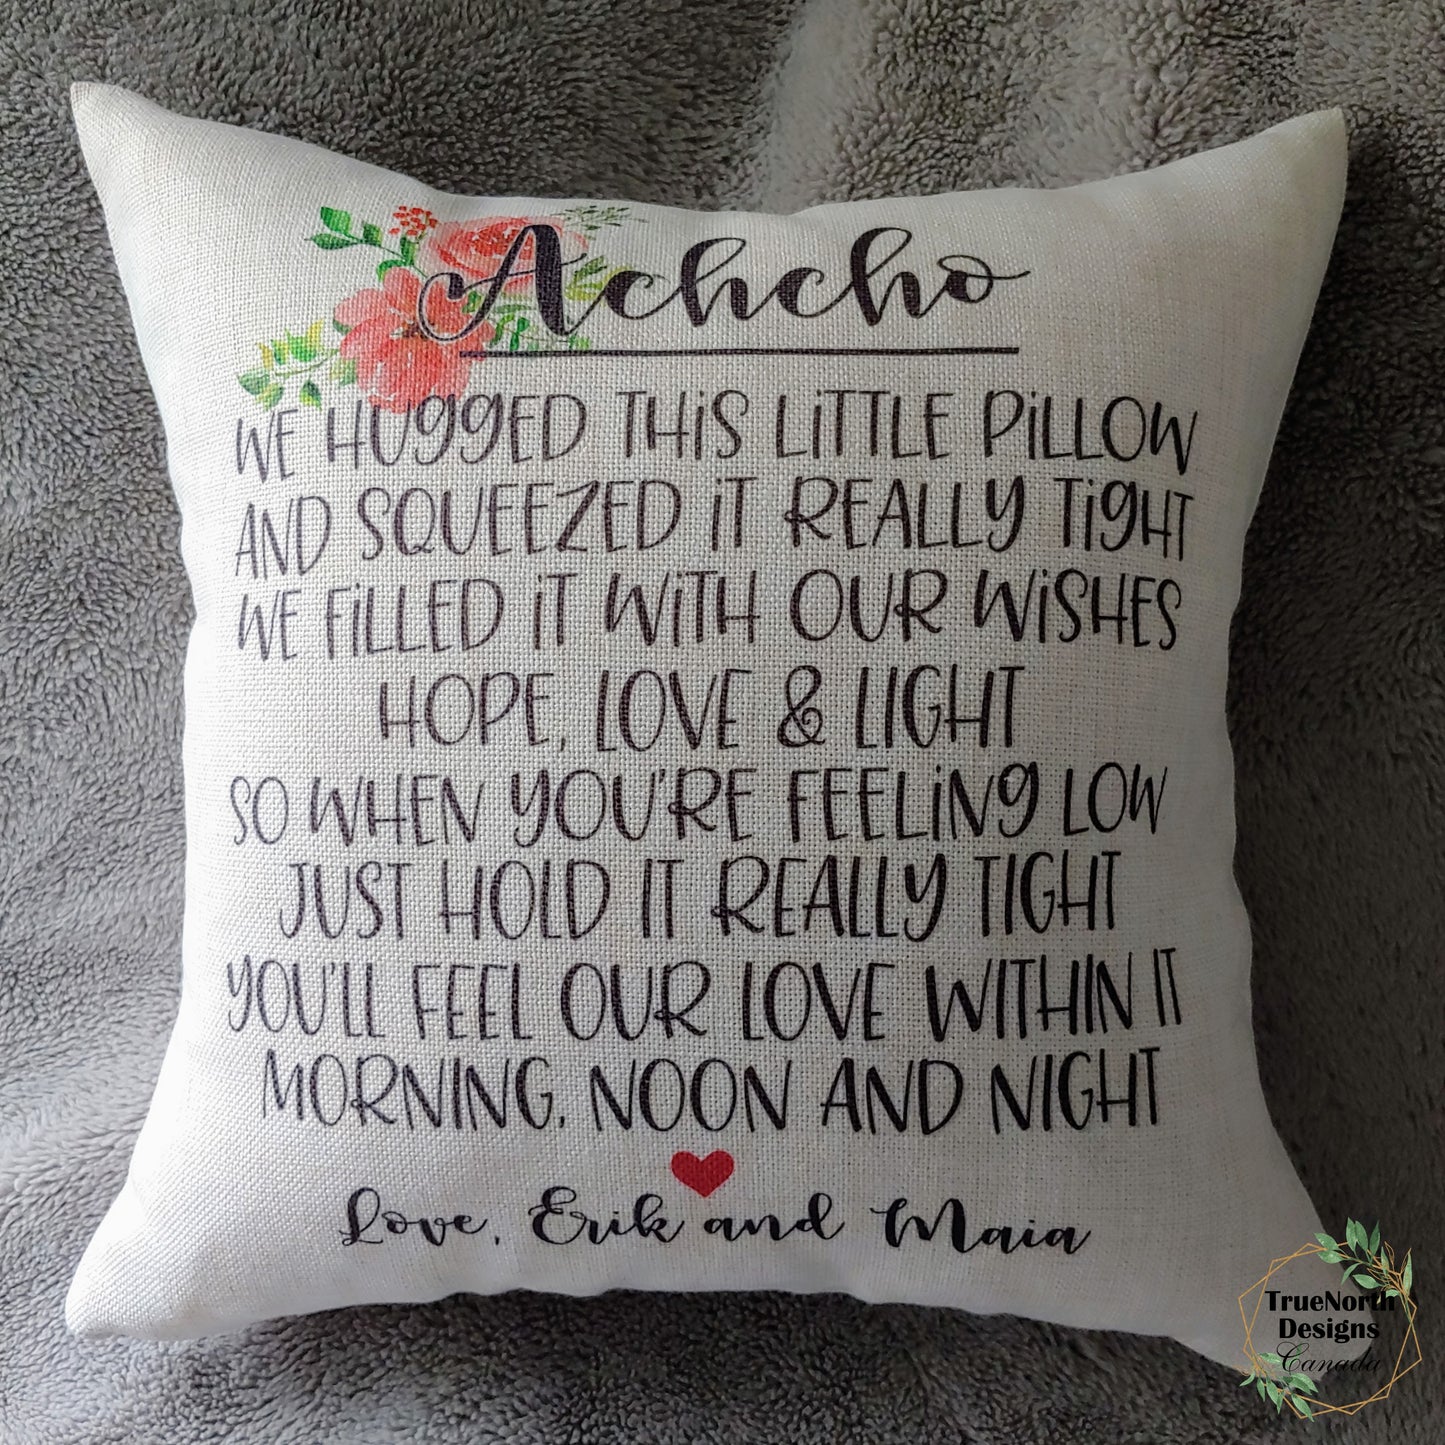 Achcho
WE HUggED THiS LiTTLE PiLLOW
AND SQUEEZED iT REALLy TigHT
WE FiLLED iT WiTH OUR WiSHES
HOPE, LOVE & LIGHT
SO WHEN yOU'RE FEELiNg LOW
JUST HOLD IT REALLy TIGHT
yOU'LL FEEL OUR LOVE WITHIN IT
MORNING, NOON AND NIGHT
Love, Erik and Maia
TrueNorth
Designs
Canada